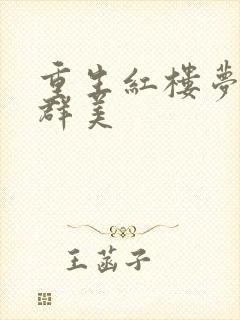 重生紅樓夢
群美
王菡子